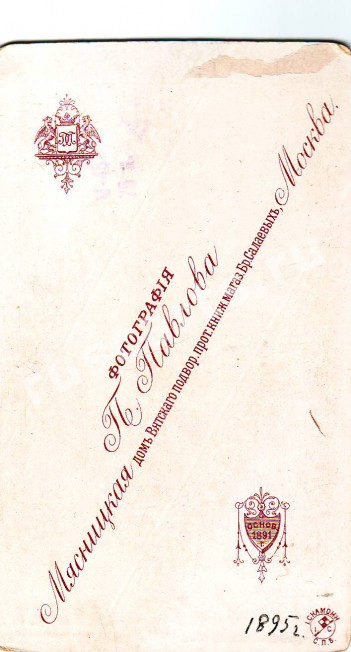 ФОТОГРАФІЯ
П. Павлова
Мясницкая домъ Вятскаго подвор. прот. книж. магаз. Бр. Салаевыхъ, Москва.
ОСНОВ.
1891
г.
1895 г.
СКАМОНИ
С.П.Б.